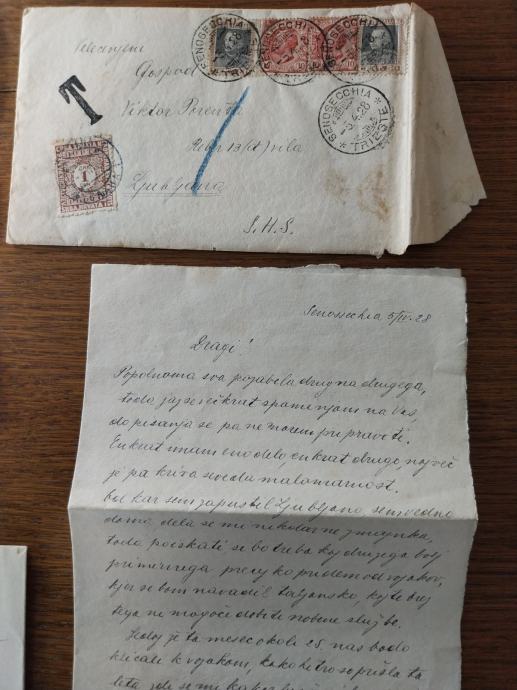 Velecenjeni
Gospod
Viktor Porenta
Ljubljana
S.H.S.
T
SENOSECCHIA
* TRIESTE *
5.4.28
1
Senosecchia 5/IV-28
Dragi!
Popolnoma sva pozabila drug na drugega,
toda jaz se večkrat spominjam na Vas
do pisanja se pa ne morem pripraviti.
Enkrat imam eno delo, enkrat drugo, največ
je pa kriva seveda malomarnost.
Od kar sem zapustil Ljubljano, sem vedno
doma, dela se mi nikdar ne zmanjka,
toda poiskati se bo treba kaj drugega bolj
primernega precej ko pridem od vojakov,
kjer se bom navadil taljansko, ker brez
tega ne mogoče dobiti nobene službe.
Zdaj je ta mesec okoli 25 nas bodo
klicali k vojakom, kako hitro so prišla ta
leta